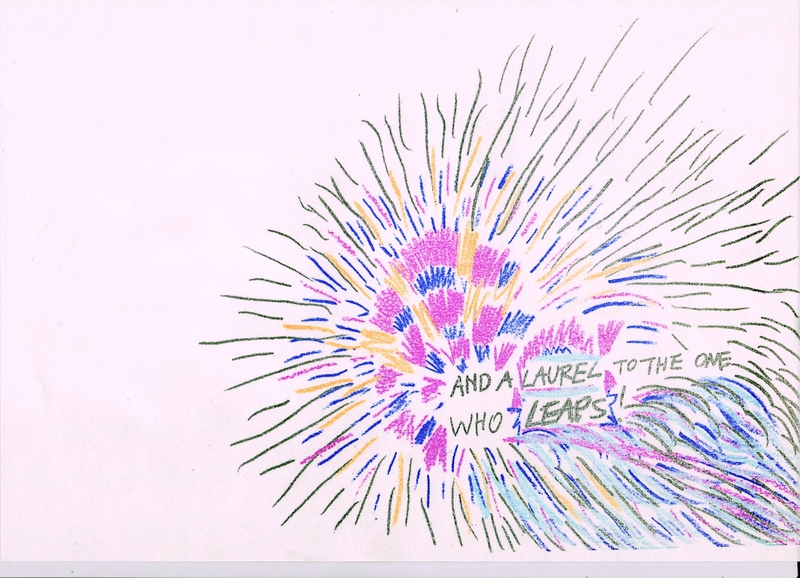 AND A LAUREL TO THE ONE
WHO LEAPS!